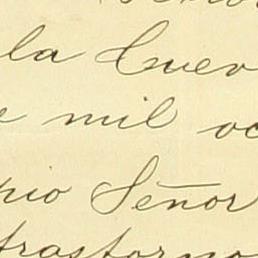 la Cuev
mil oc
pio Señor
trastorno